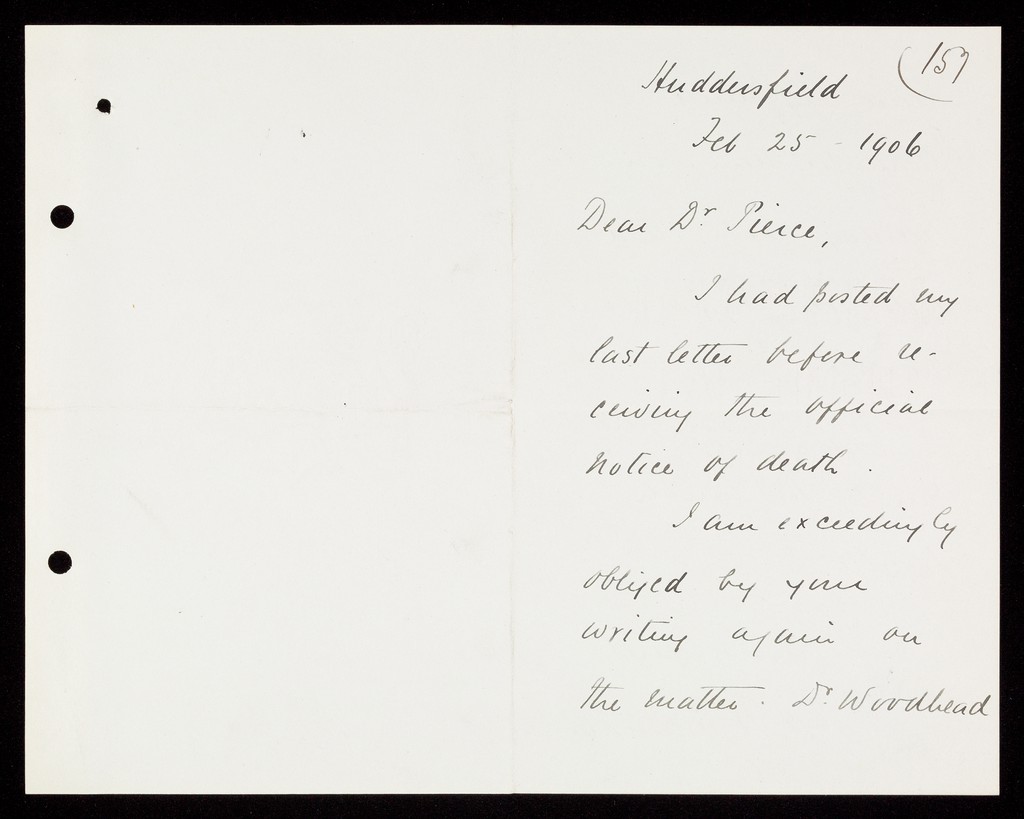 (15)
Huddersfield
Feb 25 - 1906
Dear Dr. Pierce,
I had posted my
last letter before re-
ceiving the official
notice of death.
I am exceedingly
obliged by your
writing again on
the matter. Dr. Woodhead